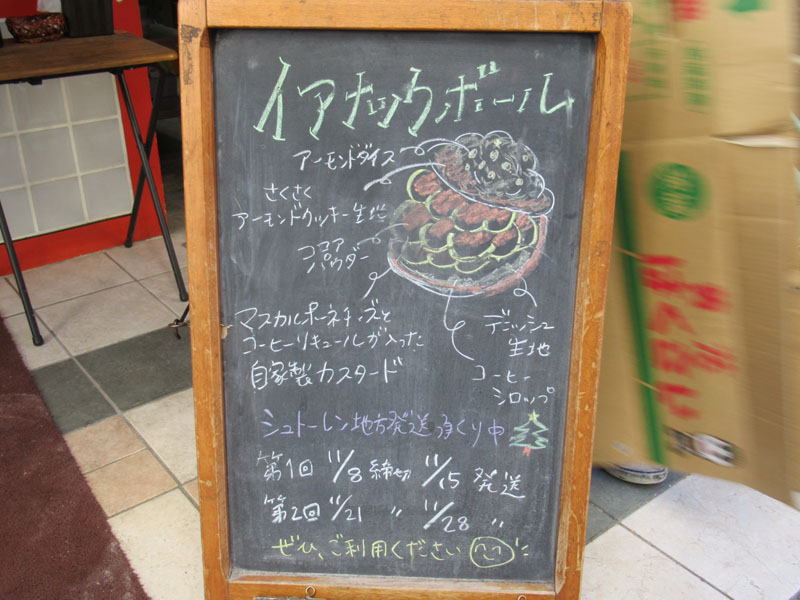 イアナックウボール
アーモンドダイス
さくさく
アーモンドクッキー生地
ココア
パウダー
マスカルポーネチーズと
コーヒーリキュールが入った
自家製カスタード
デニッシュ
生地
コーヒー
シロップ
シュトーレン地方発送承り中
第1回 11/8 締切 11/15 発送
第2回 11/21 〃 11/28 〃
ぜひ、ご利用ください